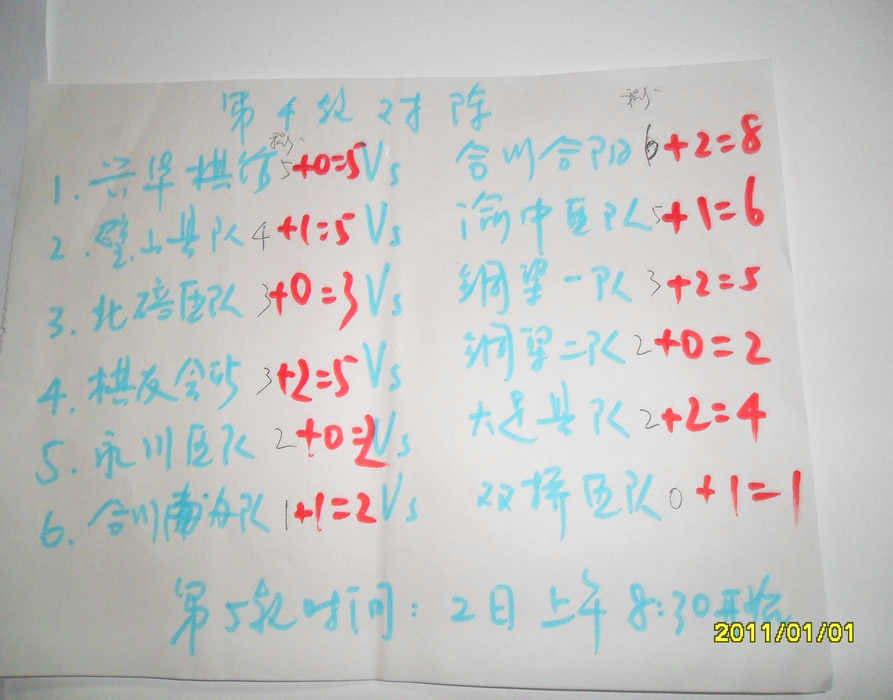 第4轮对阵
积分 积分
1. 兴华棋馆 5+0=5 Vs 合川合阳 6+2=8
2. 璧山县队 4+1=5 Vs 渝中区队 5+1=6
3. 北碚区队 3+0=3 Vs 铜梁一队 3+2=5
4. 棋友会所 3+2=5 Vs 铜梁二队 2+0=2
5. 永川区队 2+0=2 Vs 大足县队 2+2=4
6. 合川南海队 1+1=2 Vs 双桥区队 0+1=1
第5轮时间:2日上午8:30开始
2011/01/01